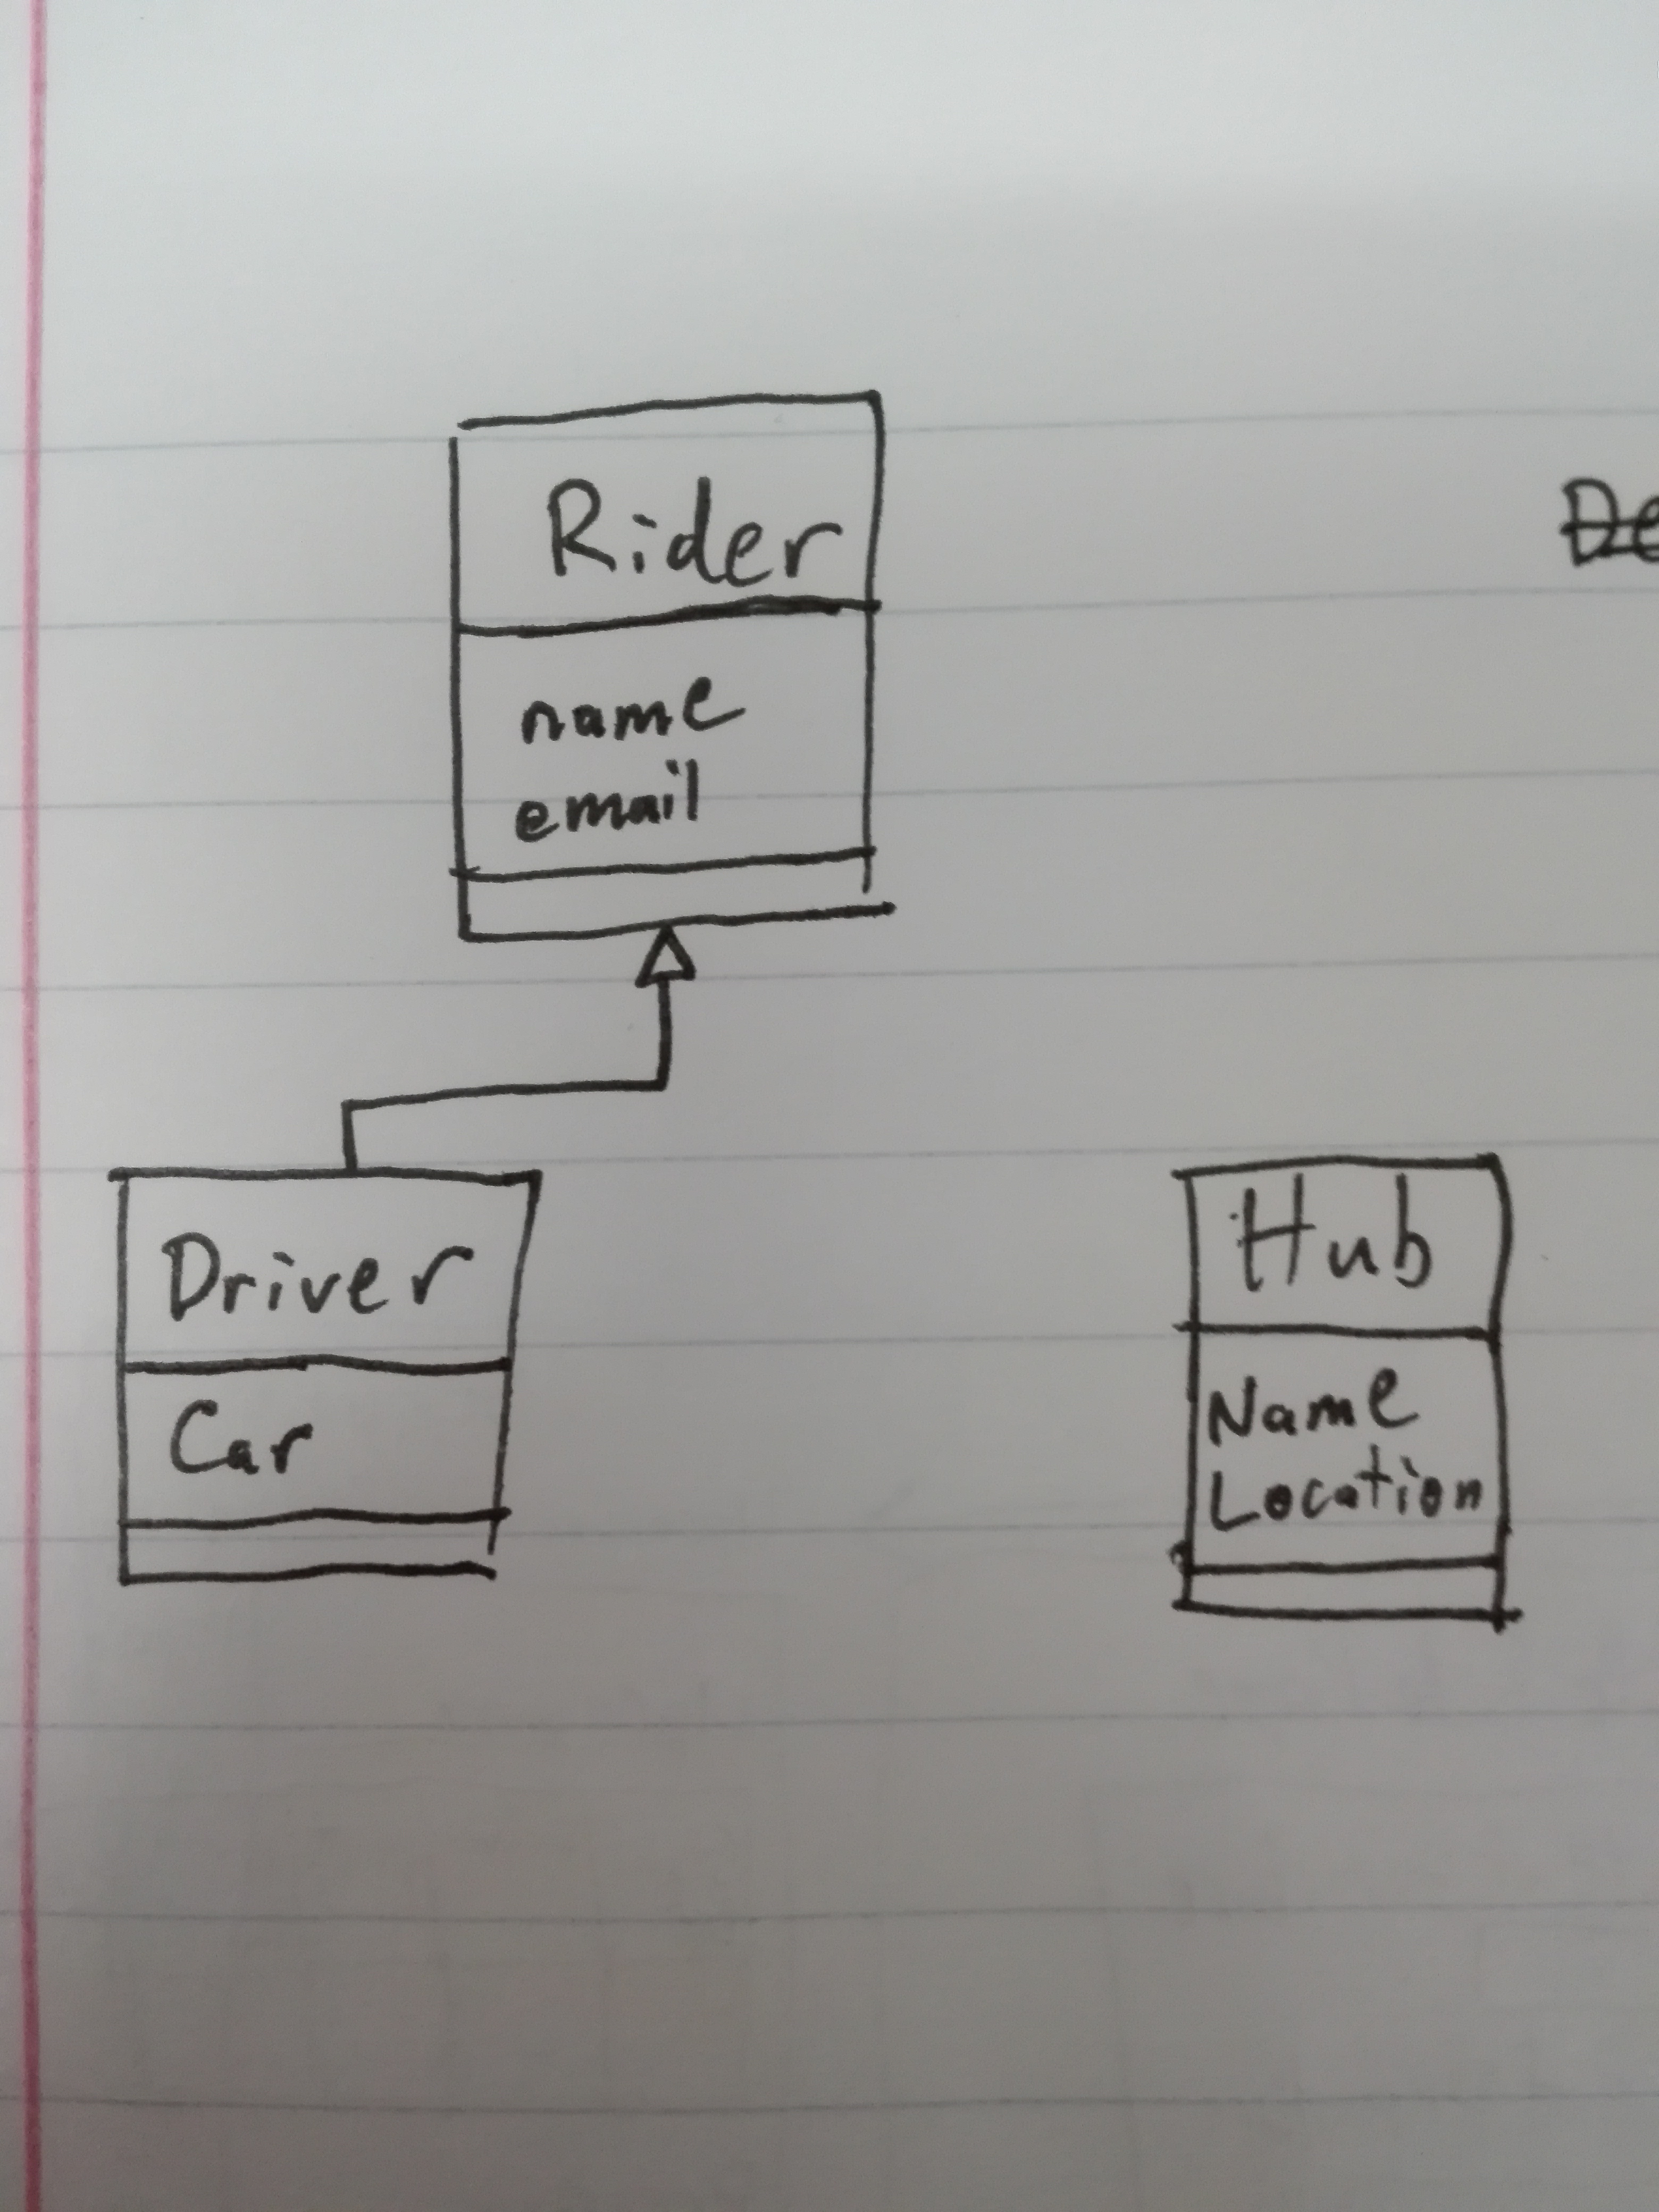 Rider
name
email
Driver
Car
Hub
Name
Location